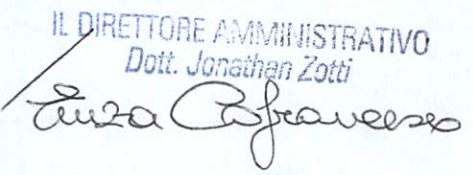 IL DIRETTORE AMMINISTRATIVO
Dott. Jonathan Zotti
Enza